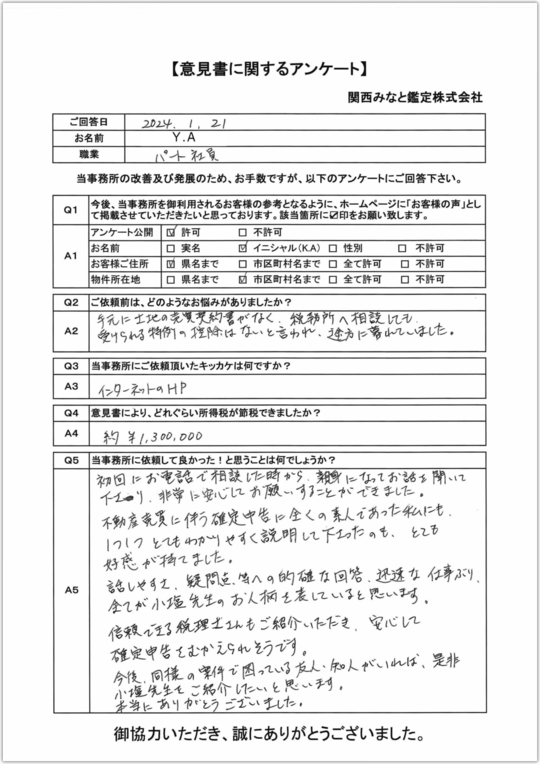 【意見書に関するアンケート】
関西みなと鑑定株式会社
ご回答日 2024. 1. 21
お名前 Y.A
職業 パート社員
当事務所の改善及び発展のため、お手数ですが、以下のアンケートにご回答下さい。
Q1 今後、当事務所を御利用されるお客様の参考となるように、ホームページに「お客様の声」とし
て掲載させていただきたいと思っております。該当箇所に☑印をお願い致します。
A1
アンケート公開 ☑ 許可 □ 不許可
お名前 □ 実名 ☑ イニシャル(K.A) □ 性別 □ 不許可
お客様ご住所 ☑ 県名まで □ 市区町村名まで □ 全て許可 □ 不許可
物件所在地 □ 県名まで ☑ 市区町村名まで □ 全て許可 □ 不許可
Q2 ご依頼前は、どのようなお悩みがありましたか?
A2 手元に土地の売買契約書がなく、税務所へ相談しても、
受けられる特例の控除はないと言われ、途方に暮れていました。
Q3 当事務所にご依頼頂いたキッカケは何ですか?
A3 インターネットのHP
Q4 意見書により、どれぐらい所得税が節税できましたか?
A4 約 ¥1,300,000
Q5 当事務所に依頼して良かった!と思うことは何でしょうか?
A5 初回にお電話で相談した時から、親身になってお話を聞いて
下さり、非常に安心してお願いすることができました。
不動産売買に伴う確定申告に全くの素人であった私にも、
1つ1つとてもわかりやすく説明して下さったのも、とても
好感が持てました。
話しやすさ、疑問点等への的確な回答、迅速な仕事ぶり、
全てが小塩先生のお人柄を表していると思います。
信頼できる税理士さんもご紹介いただき、安心して
確定申告をむかえられそうです。
今後、同様の案件で困っている友人・知人がいれば、是非
小塩先生をご紹介したいと思います。
本当にありがとうございました。
御協力いただき、誠にありがとうございました。